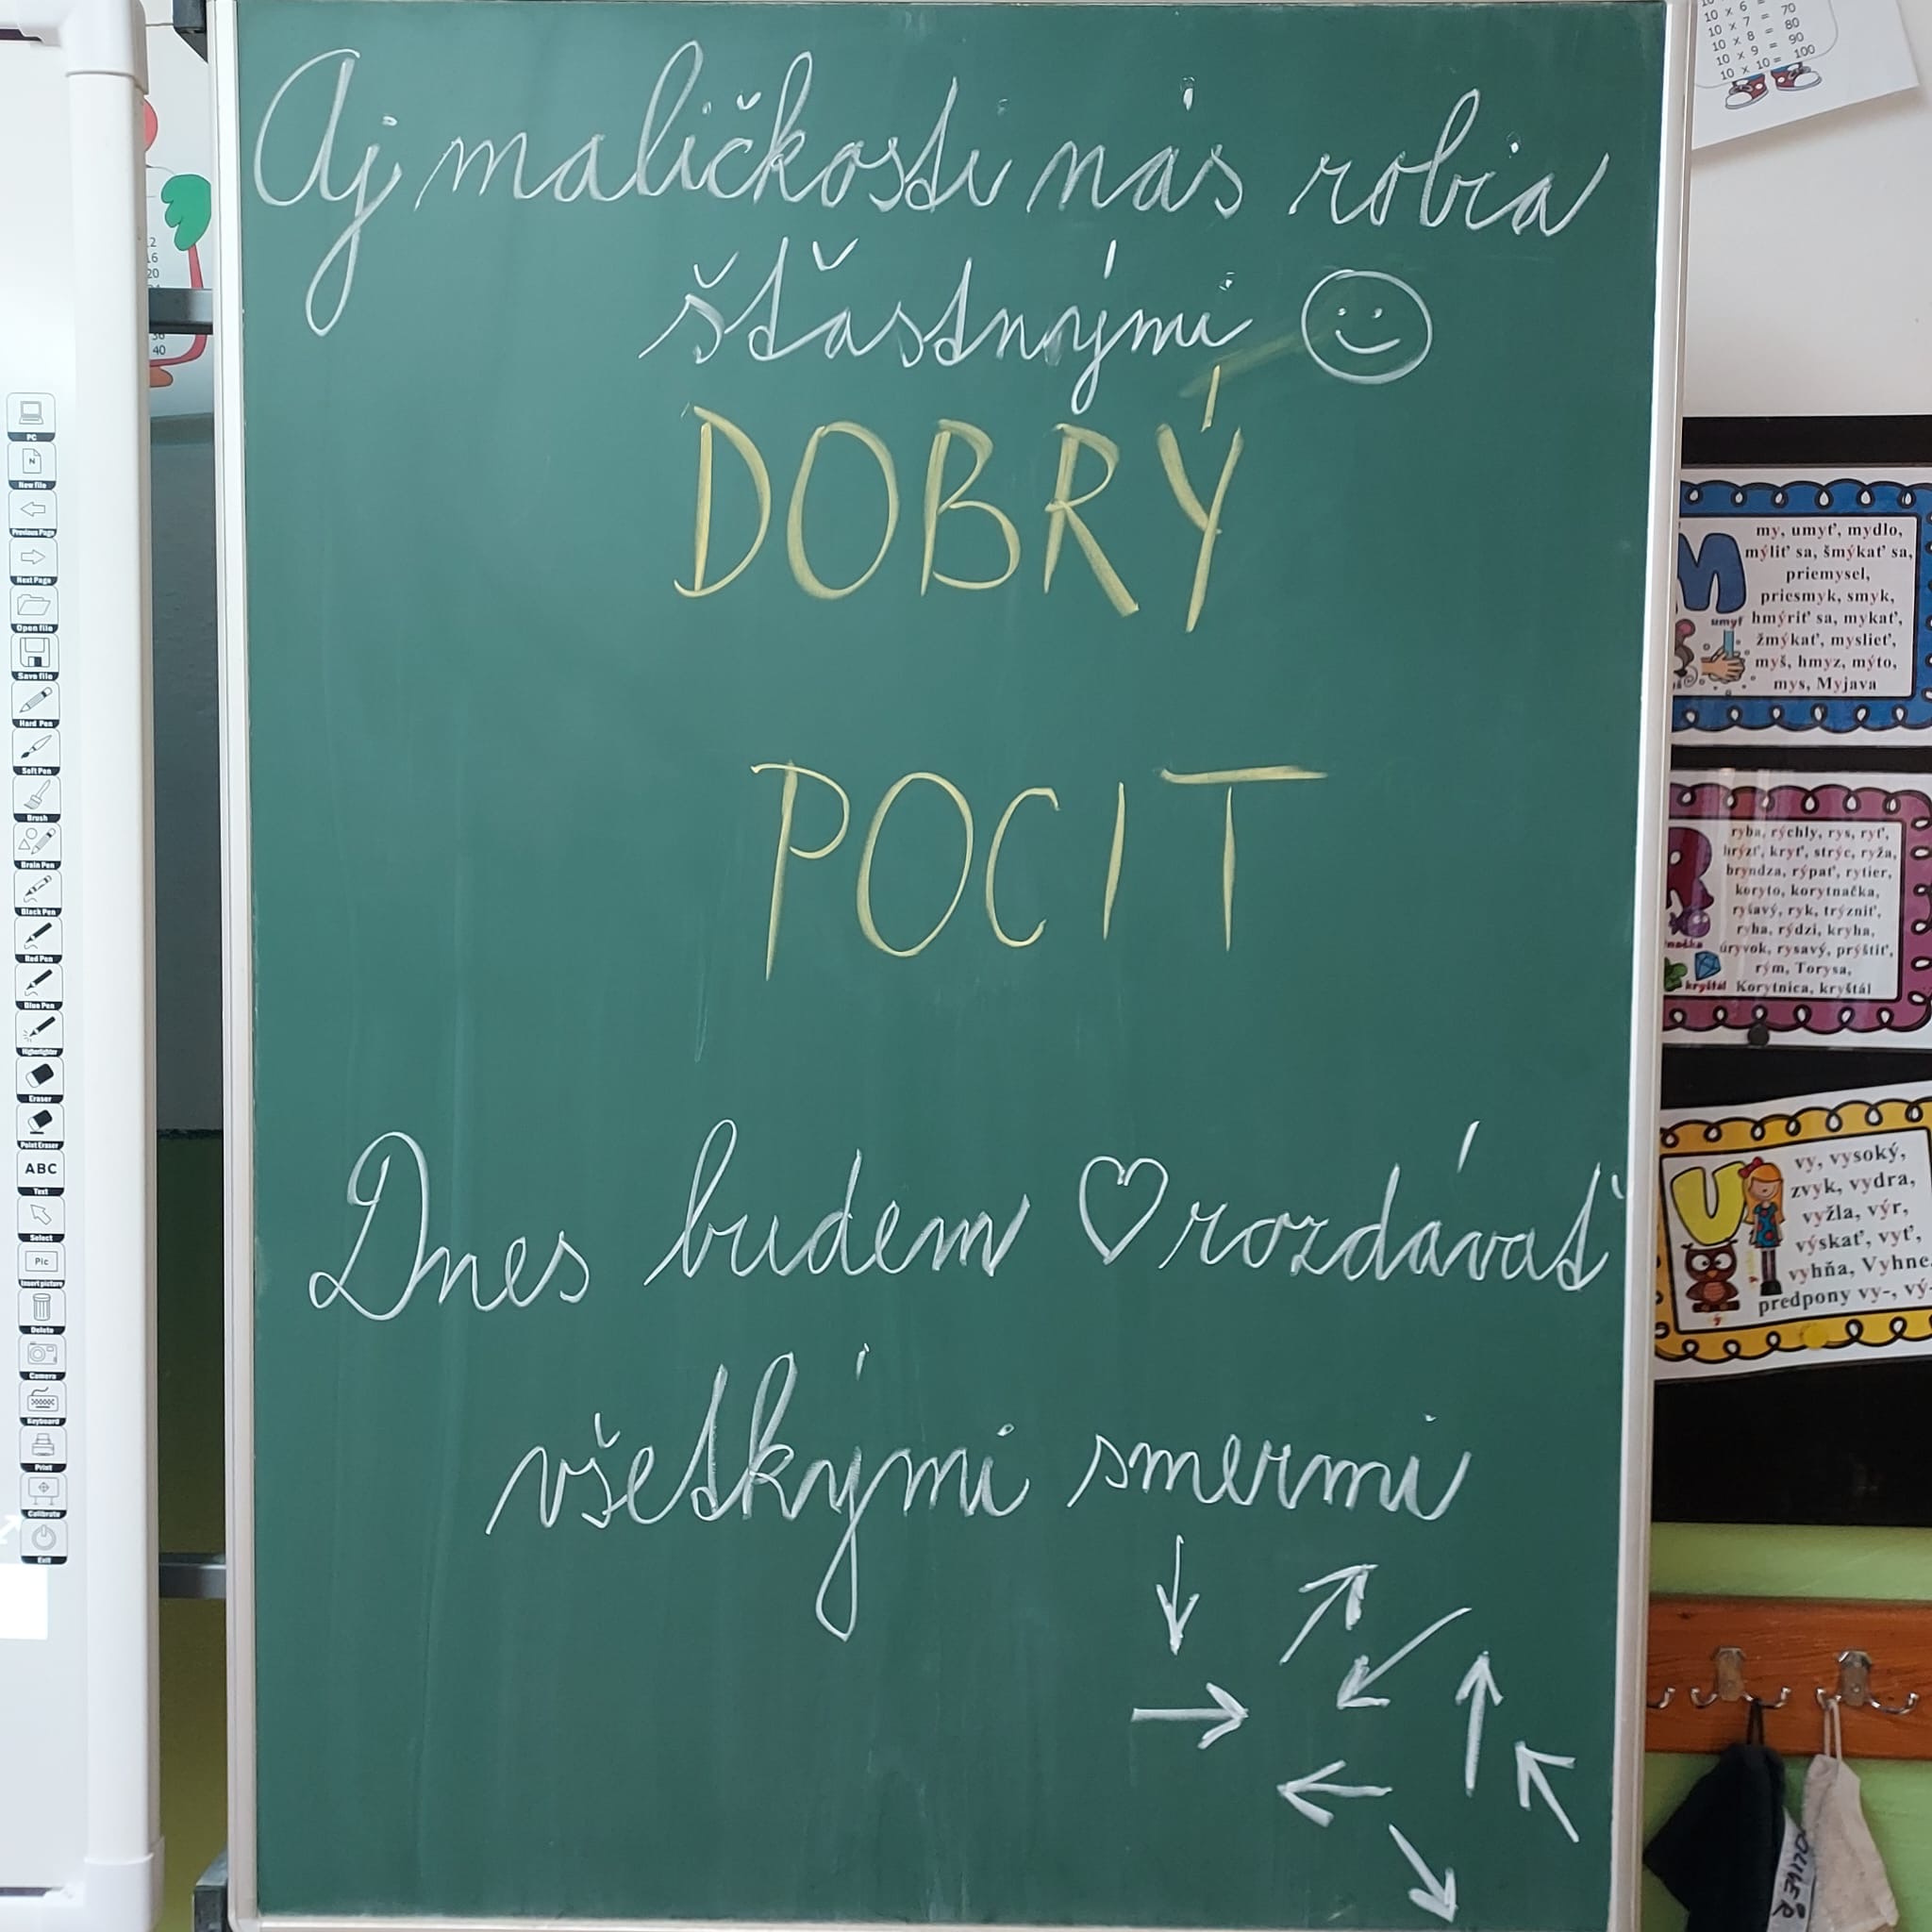 Aj maličkosti nás robia
šťastnými
DOBRÝ
POCIT
Dnes budem ♡ rozdávať
všetkými smermi
10 x 6 =
10 x 7 = 70
10 x 8 = 80
10 x 9 = 90
10 x 10 = 100
12
16
20
36
40
PC
New file
Previous Page
Next Page
Open file
Save file
Hard Pen
Soft Pen
Brush
Brain Pen
Black Pen
Red Pen
Blue Pen
Highlighter
Eraser
Point Eraser
ABC
Text
Select
Pic
Insert picture
Delete
Camera
Keyboard
Print
Calibrate
Exit
M
my, umyť, mydlo,
mýliť sa, šmýkať sa,
priemysel,
priesmyk, smyk,
hmýriť sa, mykať,
žmýkať, myslieť,
myš, hmyz, mýto,
mys, Myjava
umyť
R
ryba, rýchly, rys, ryť,
hrýzť, kryť, strýc, ryža,
bryndza, rýpať, rytier,
koryto, korytnačka,
ryšavý, ryk, trýzniť,
ryha, rýdzi, kryha,
úryvok, rysavý, prýštiť,
rým, Torysa,
Korytnica, kryštál
kryštál
V
vy, vysoký,
zvyk, vydra,
vyžla, výr,
výskať, vyť,
vyhňa, Vyhne,
predpony vy-, vý-